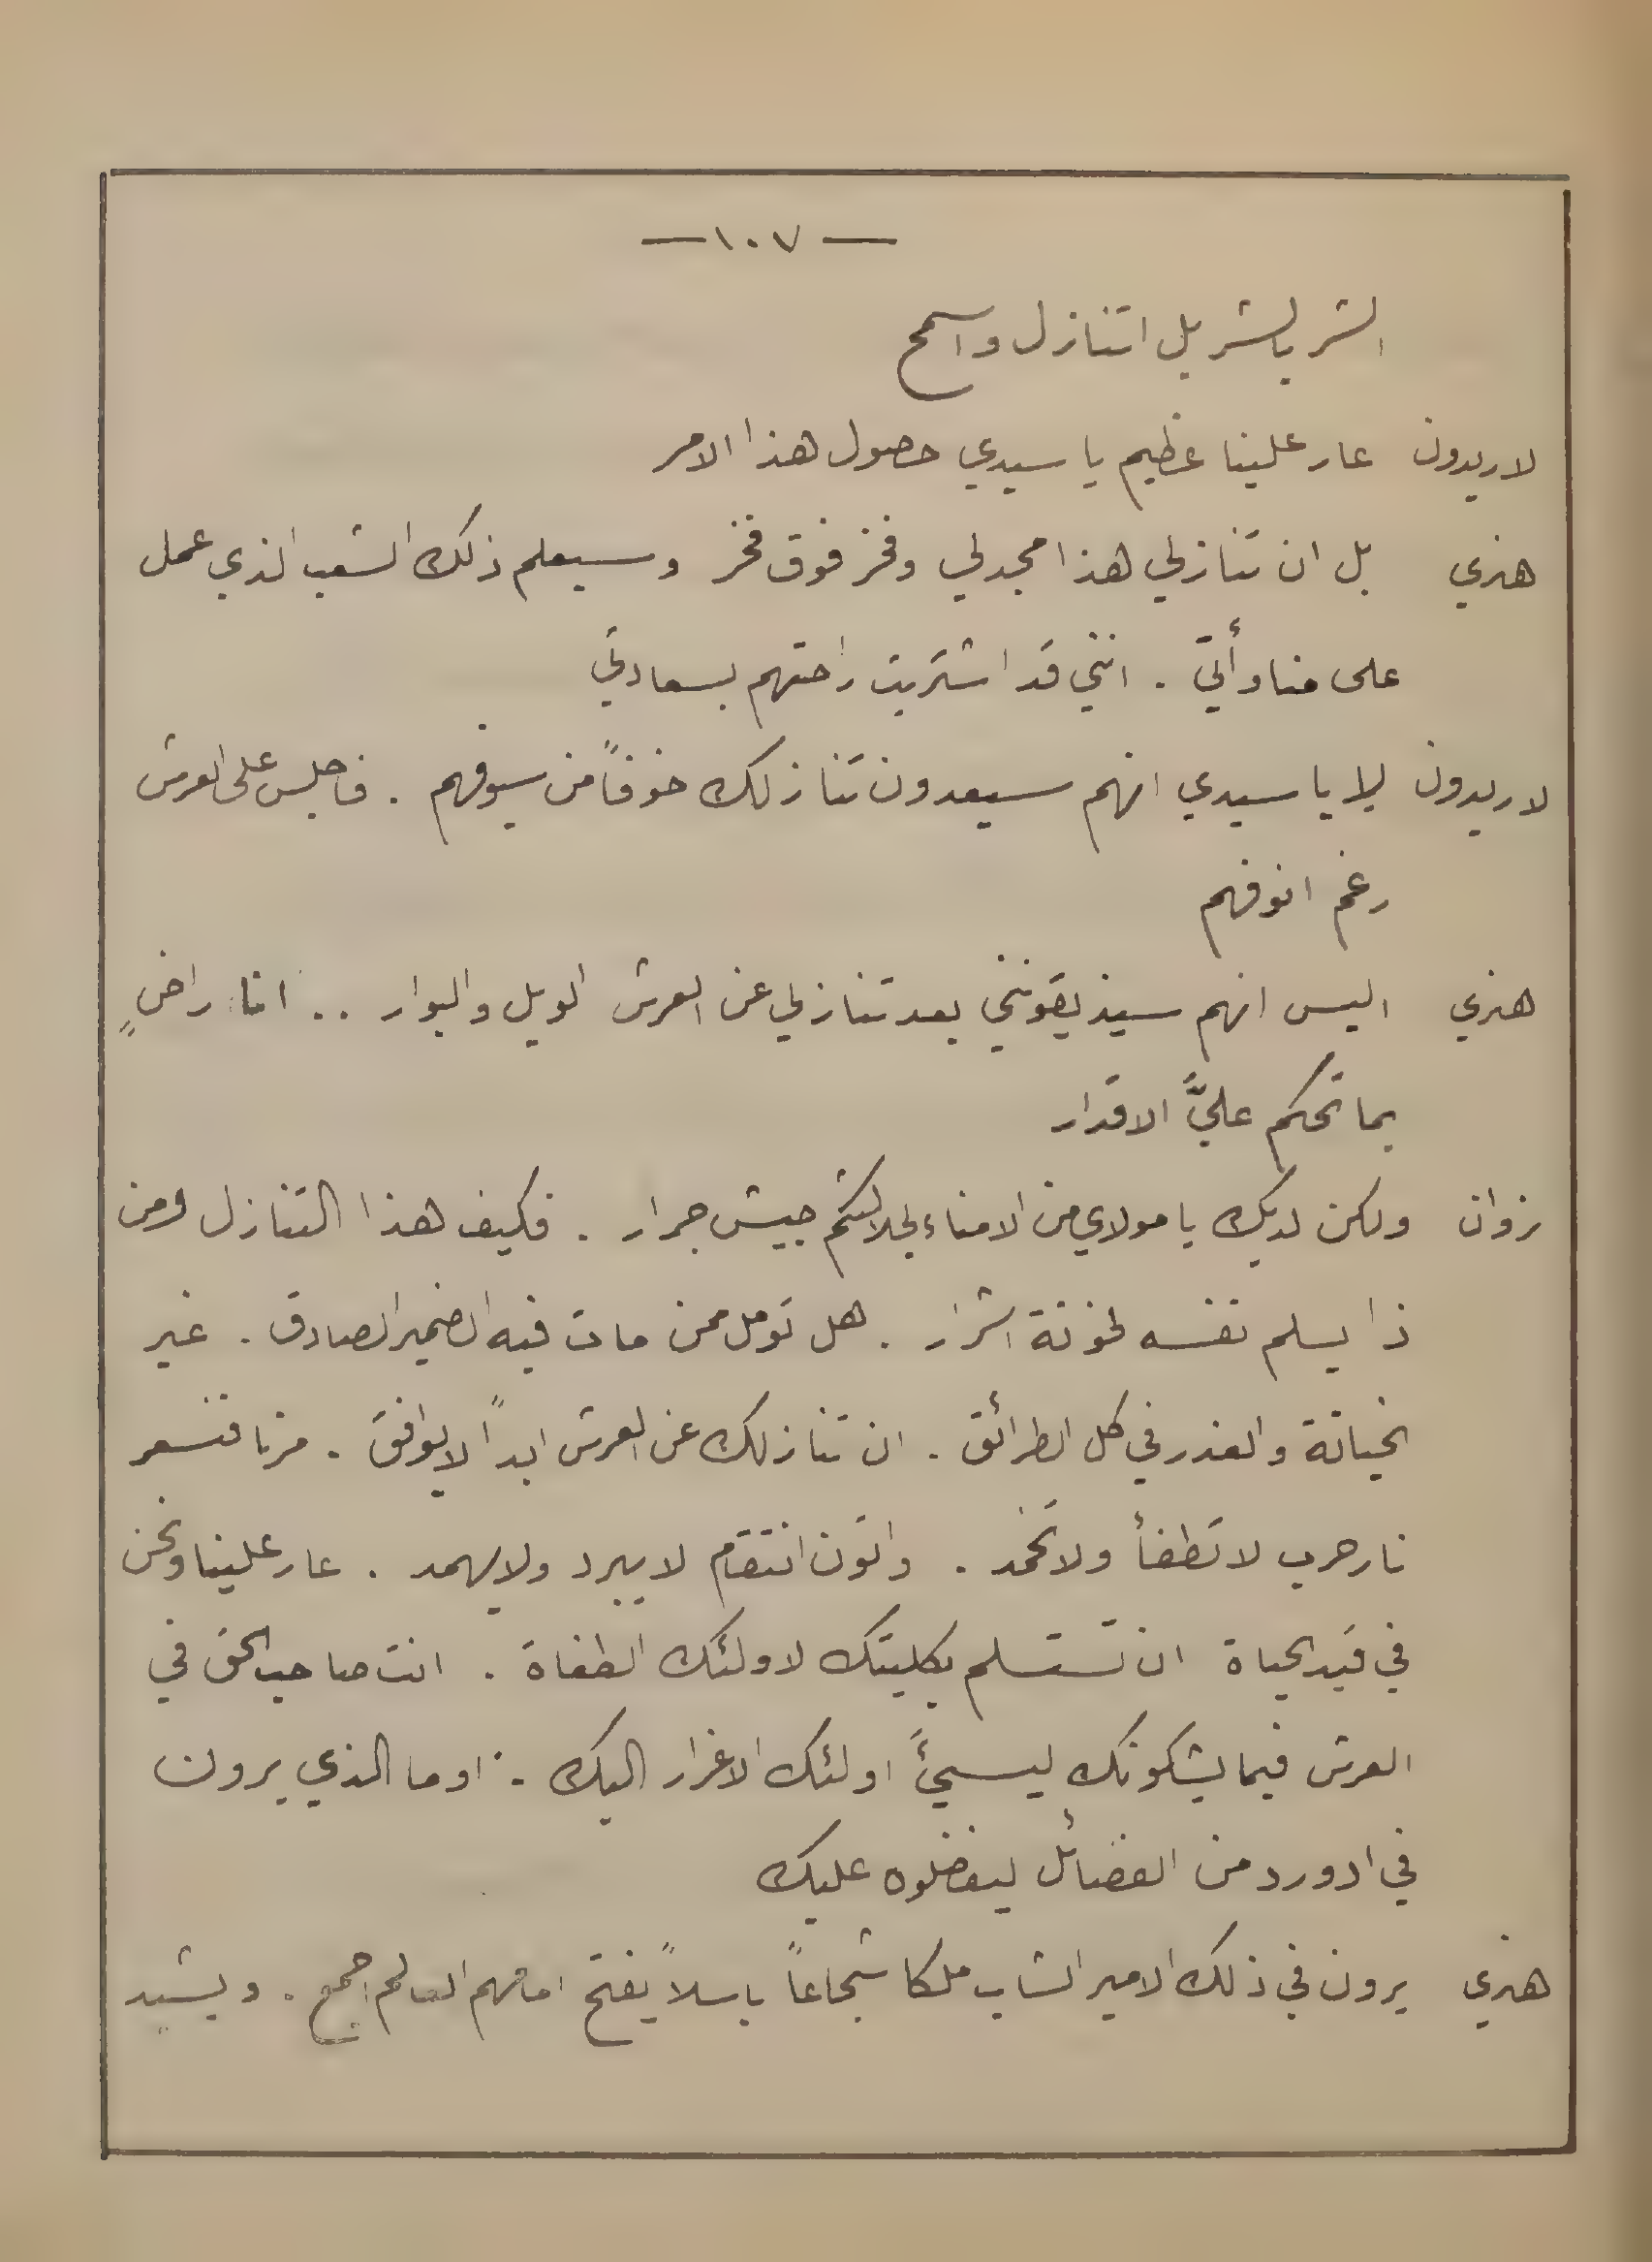 — ١٠٧ —
الشر بالشر بل اتنازل واسمح
لاريدون عار علينا عظيم يا سيدي حصول هذا الامر
هنري بل ان تنازلي هذا مجد لي وفخر فوق فخر وسيعلم ذلك الشعب الذي عمل
على مناوأتي . انني قد اشتريت راحتهم بسعادتي
لاريدون لا يا سيدي انهم سيعدون تنازلك خوفاً من سيوفهم . فاجلس على العرش
رغم انوفهم
هنري اليس انهم سيذيقونني بعد تنازلي عن العرش الويل والبوار .. انا راضٍ
بما تحكم عليَّ الاقدار
نروان ولكن لديك يا مولاي من الامناء لجلالتكم جيش جرار . فكيف هذا التنازل ومن
ذا يسلم نفسه لخونة اشرار . هل تؤمل ممن مات فيه الضمير الصادق . غير
الخيانة والغدر في كل الطرائق . ان تنازلك عن العرش ابداً لا يوافق . مرنا فنسعر
نار حرب لا تطفأ ولا تخمد . واتون انتقام لا يبرد ولا يهمد . عار علينا ونحن
في قيد الحياة ان تستسلم بكليتك لاولئك الطغاة . انت صاحب الحق في
العرش فيما يشكونك ليسيئَ اولئك الاغرار اليك . اوما الذي يرون
في ادورد من الفضائل ليفضلوه عليك
هنري يرون في ذلك الامير الشاب ملكا شجاعاً باسلاً يفتح امامهم العالم اجمع . ويشيد